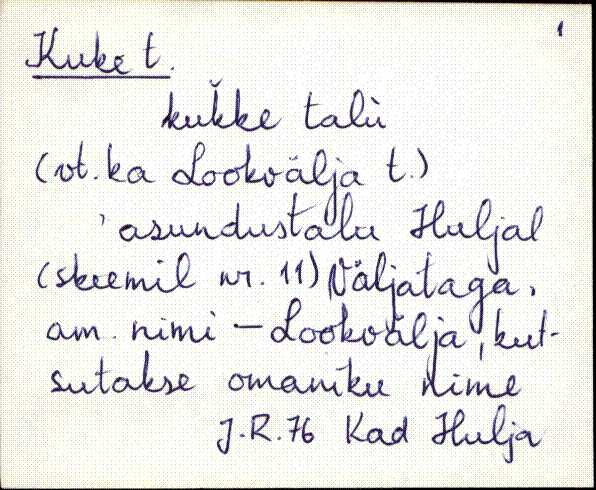 1
Kuke t.
kŭkke talù
(vt. ka Lookvälja t.)
asundustalu Huljal
(skeemil nr. 11) Väljataga,
am. nimi – Lookvälja, kut-
sutakse omaniku nime
J.R. 76 Kad Hulja